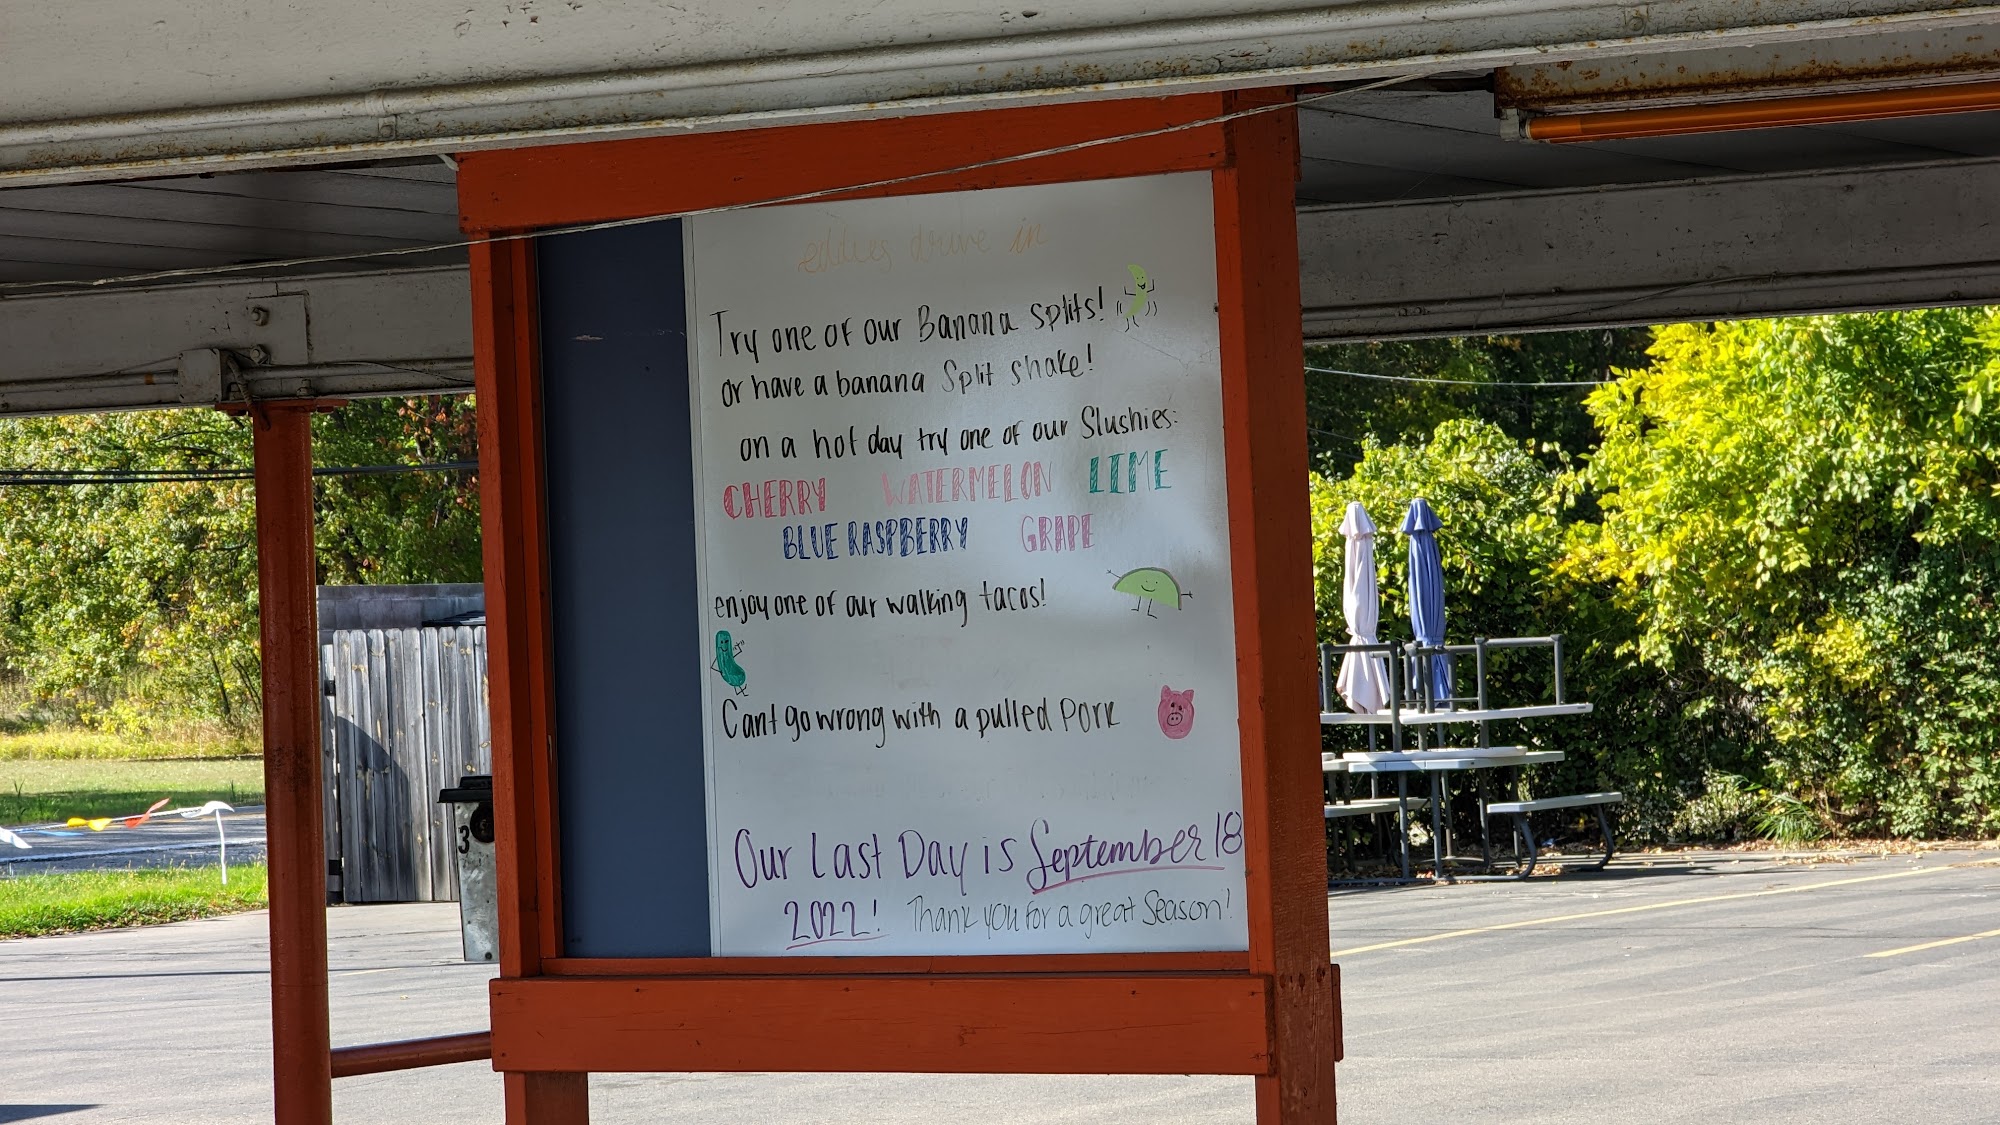 eddies drive in
Try one of our Banana splits!
or have a banana Split shake!
on a hot day try one of our Slushies:
CHERRY WATERMELON LIME
BLUE RASPBERRY GRAPE
enjoy one of our walking tacos!
Cant go wrong with a pulled Pork
Our Last Day is September 18
2022! Thank you for a great Season!
3